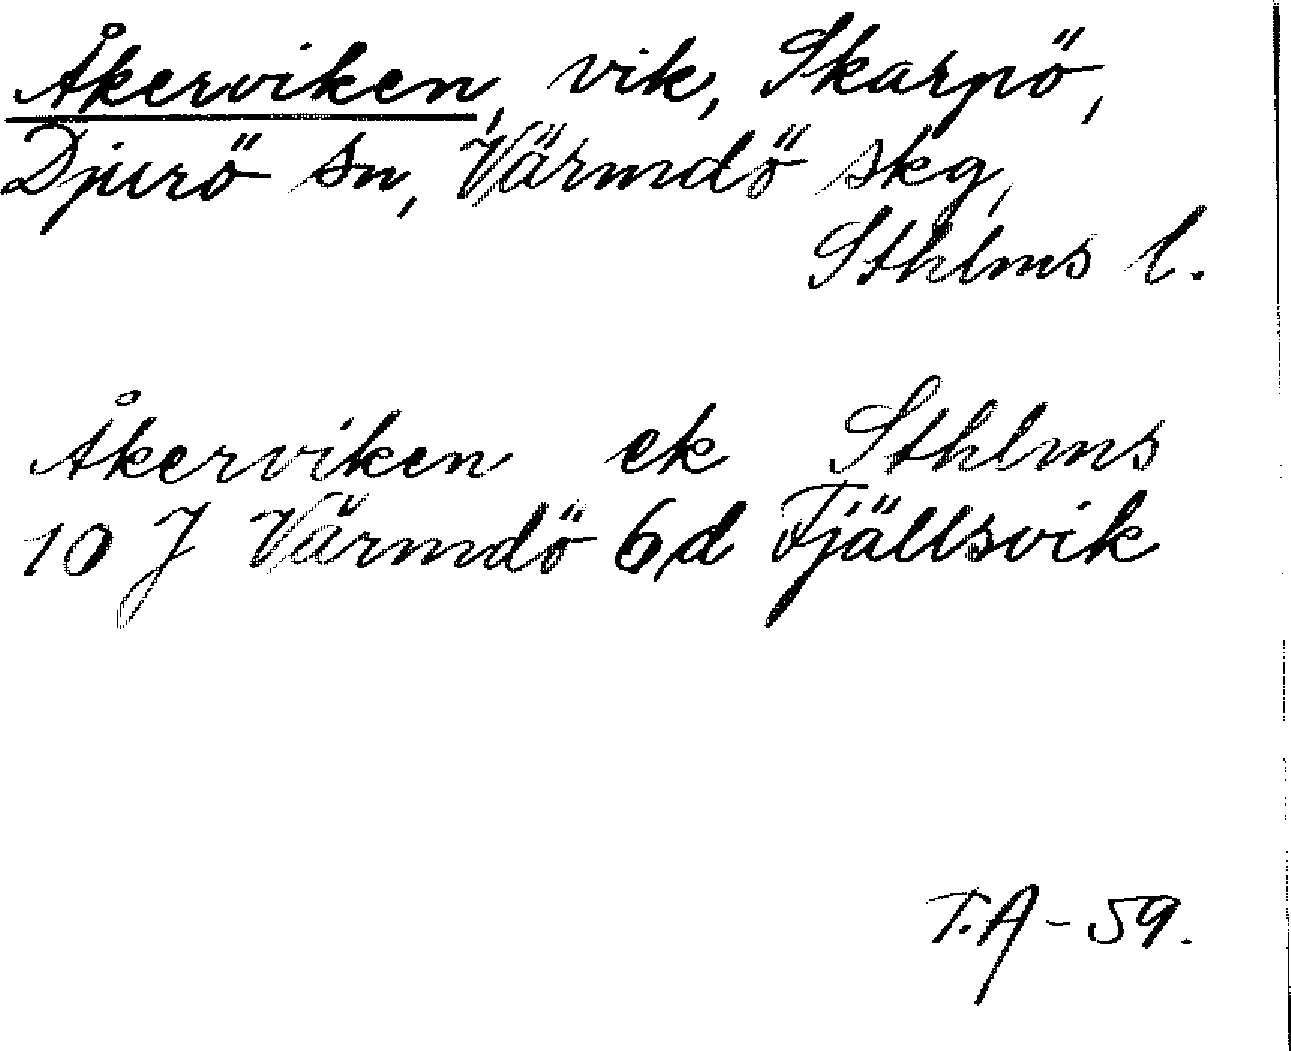 Åkerviken, vik, Skarpö,
Djurö sn, Värmdö skg,
Sthlms l.
Åkerviken ek Sthlms
10 J Värmdö 6d Fjällsvik
T.A - 59.